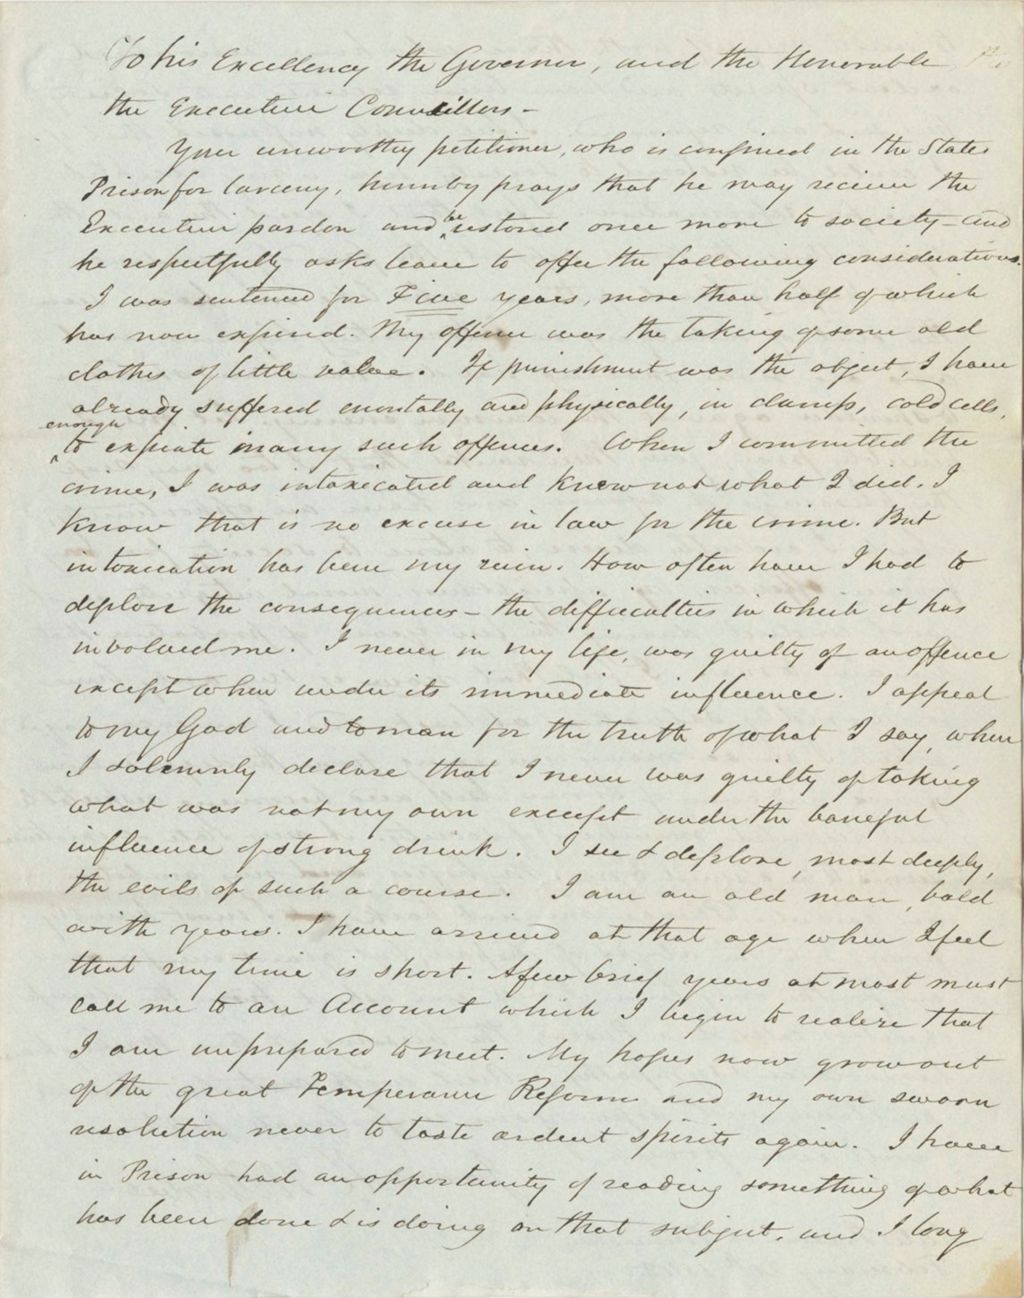 To his Excellency the Governor, and the Honorable
the Executive Councillors -
Your unworthy petitioner, who is confined in the States
Prison for larceny, humbly prays that he may receive the
Executive pardon and be restored once more to society - and
he respectfully asks leave to offer the following considerations.
I was sentenced for Five years, more than half of which
has now expired. My offence was the taking of some old
clothes of little value. If punishment was the object, I have
already suffered mentally and physically, in damp, cold cells,
enough
to expiate many such offences. When I committed the
crime, I was intoxicated and knew not what I did. I
know that is no excuse in law for the crime. But
intoxication has been my ruin. How often have I had to
deplore the consequences - the difficulties in which it has
involved me. I never in my life, was guilty of an offence
except when under its immediate influence. I appeal
to my God and to man for the truth of what I say, when
I solemnly declare that I never was guilty of taking
what was not my own except under the baneful
influence of strong drink. I see & deplore, most deeply,
the evils of such a course. I am an old man, bald
with years. I have arrived at that age when I feel
that my time is short. A few brief years at most must
call me to an Account which I begin to realize that
I am unprepared to meet. My hopes now grow out
of the great Temperance Reform and my own sworn
resolution never to taste ardent spirits again. I have
in Prison had an opportunity of reading something of what
has been done & is doing on that subject, and I long